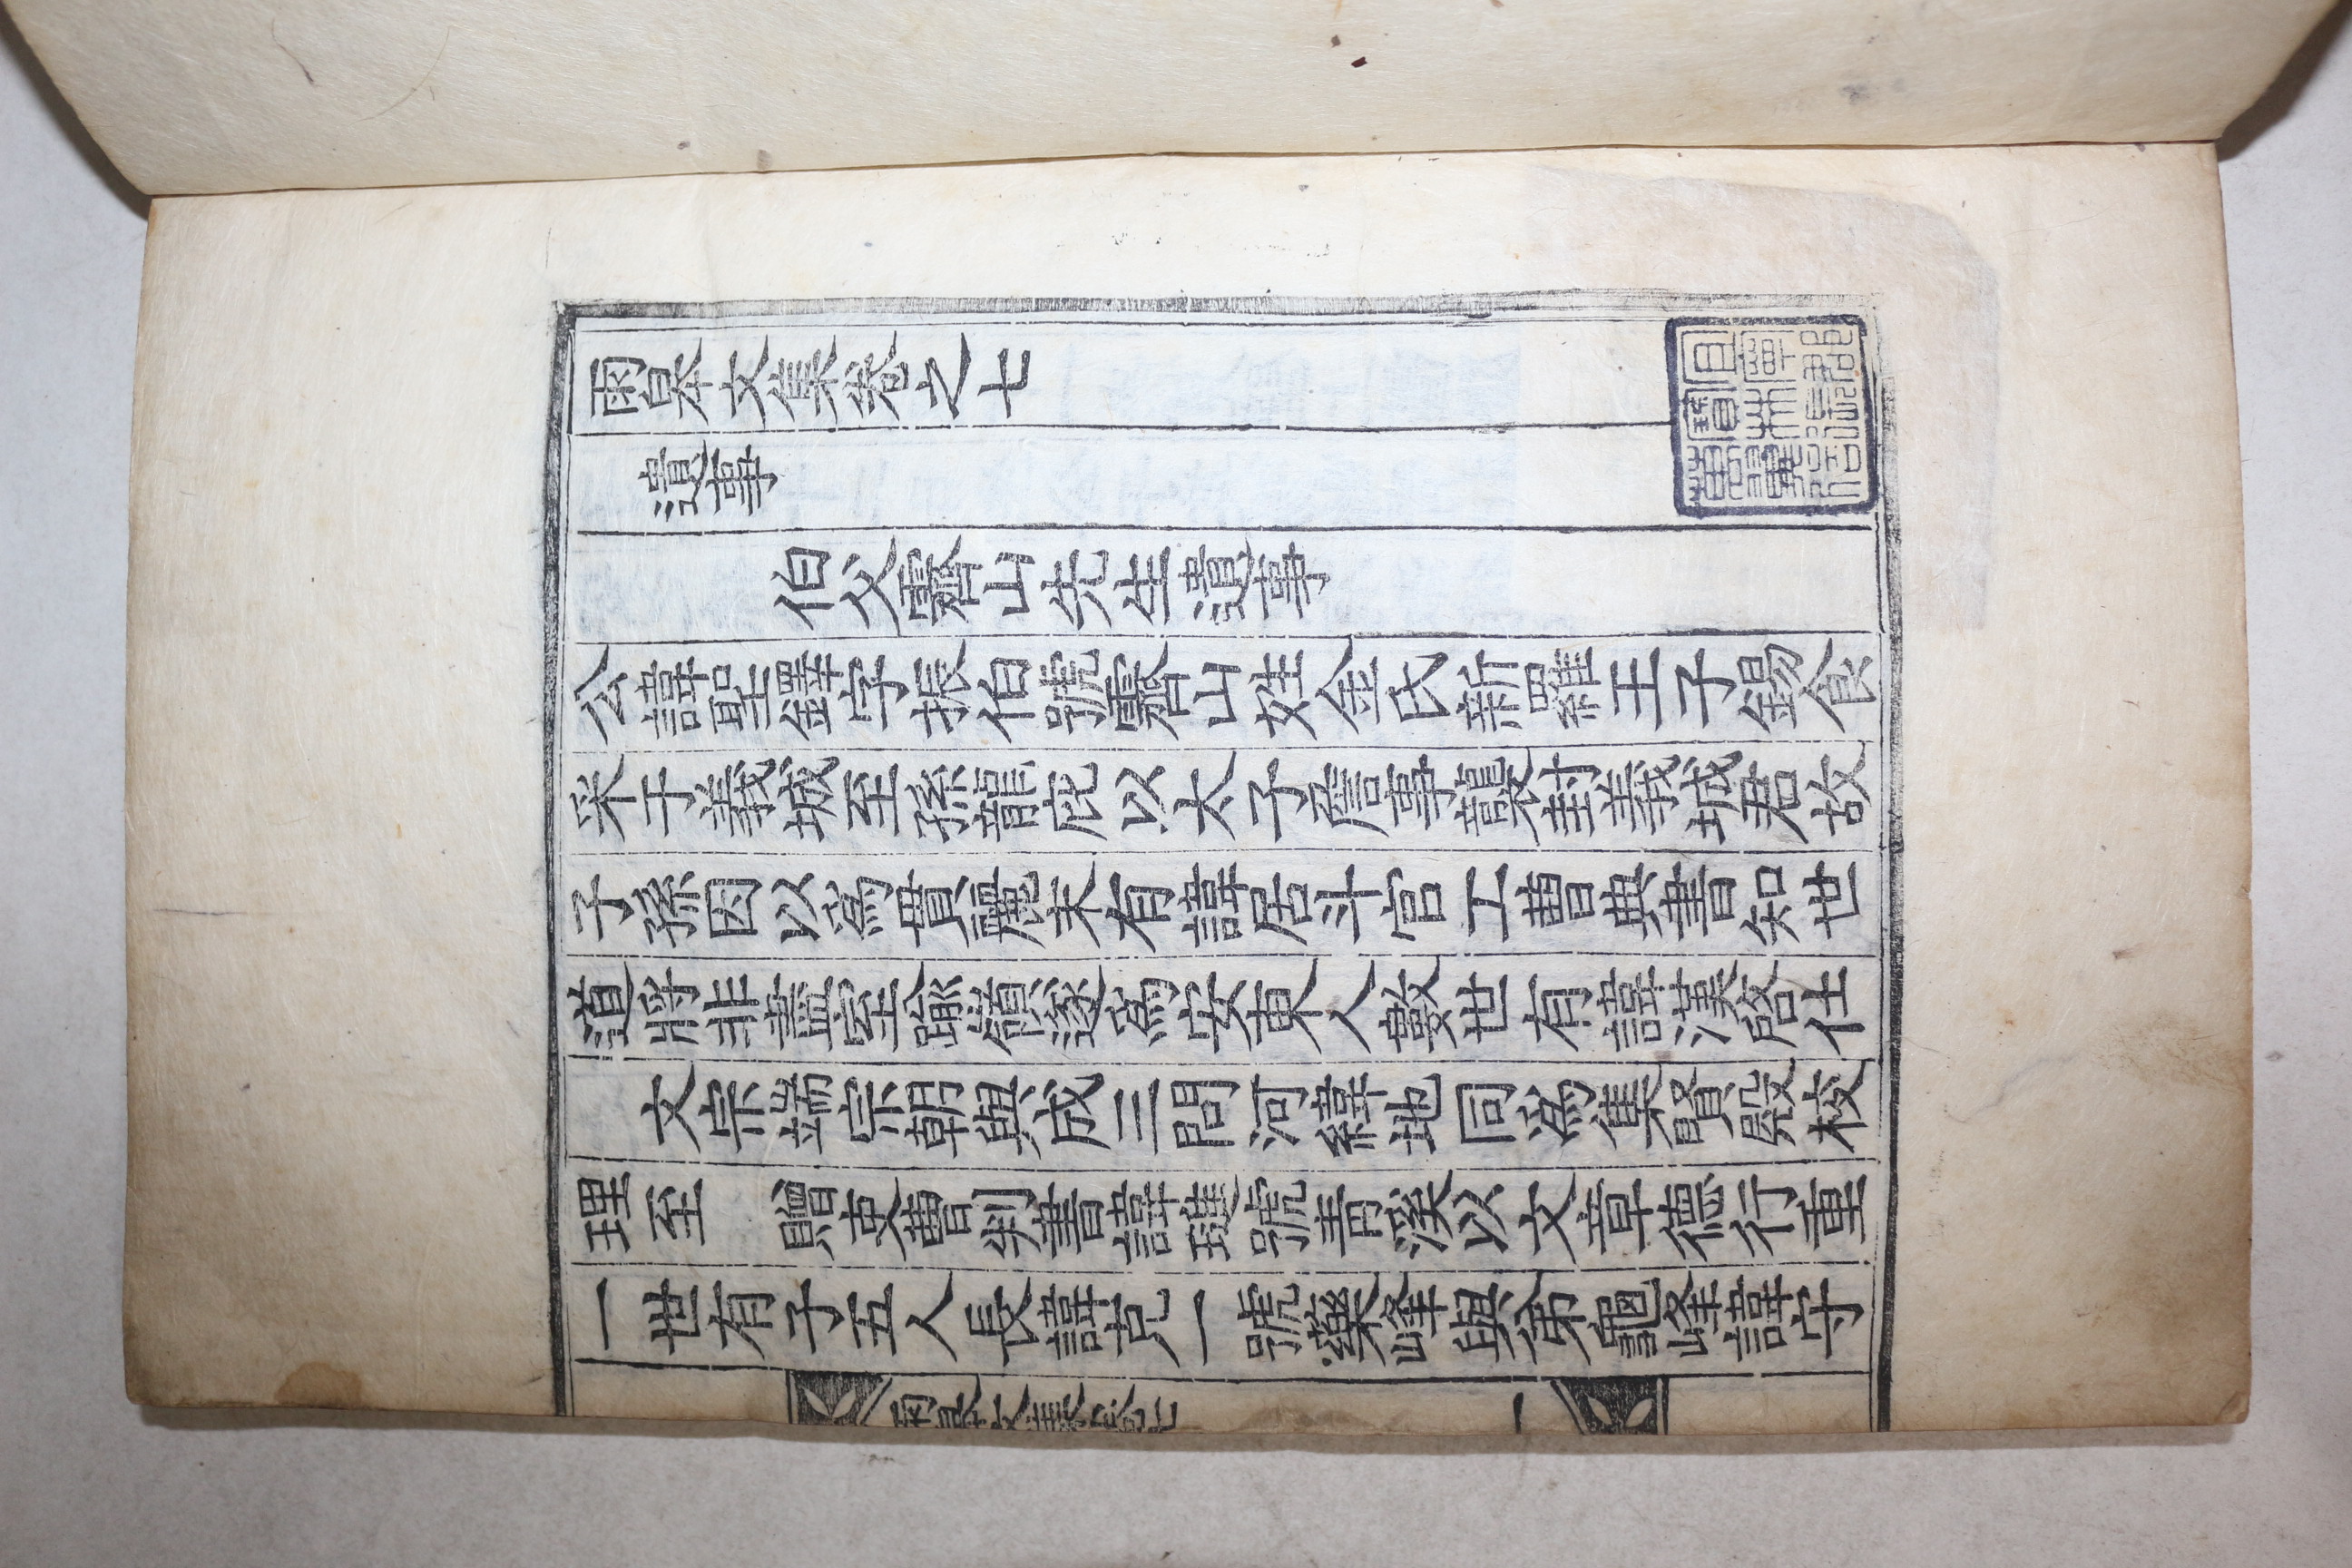 雨皐文集卷之七
遺事
伯父霽山先生遺事
公諱聖鐸字振伯號霽山姓金氏新羅王子錫食
采于義城至孫龍庇以太子詹事襲封義城君故
子孫因以爲貫麗末有諱居斗官工曹典書知世
道將非盡室踰嶺遂爲安東人數世有諱漢啓仕
文宗端宗朝與成三問河緯地同爲集賢殿校
理至　贈吏曹判書諱璡號靑溪以文章德行重
一世有子五人長諱克一號藥峰與弟龜峰諱守
雨皐文集卷七　一